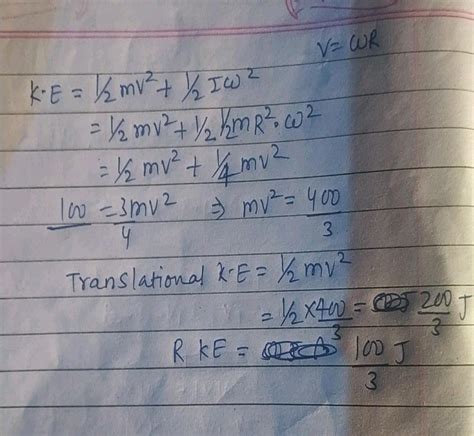 V = ωR
K·E = 1/2 mv² + 1/2 Iω²
= 1/2 mv² + 1/2 1/2 mR²·ω²
= 1/2 mv² + 1/4 mv²
100 = 3mv²/4 ⇒ mv² = 400/3
Translational K·E = 1/2 mv²
= 1/2 × 400/3 = 200/3 J
R KE = 100/3 J